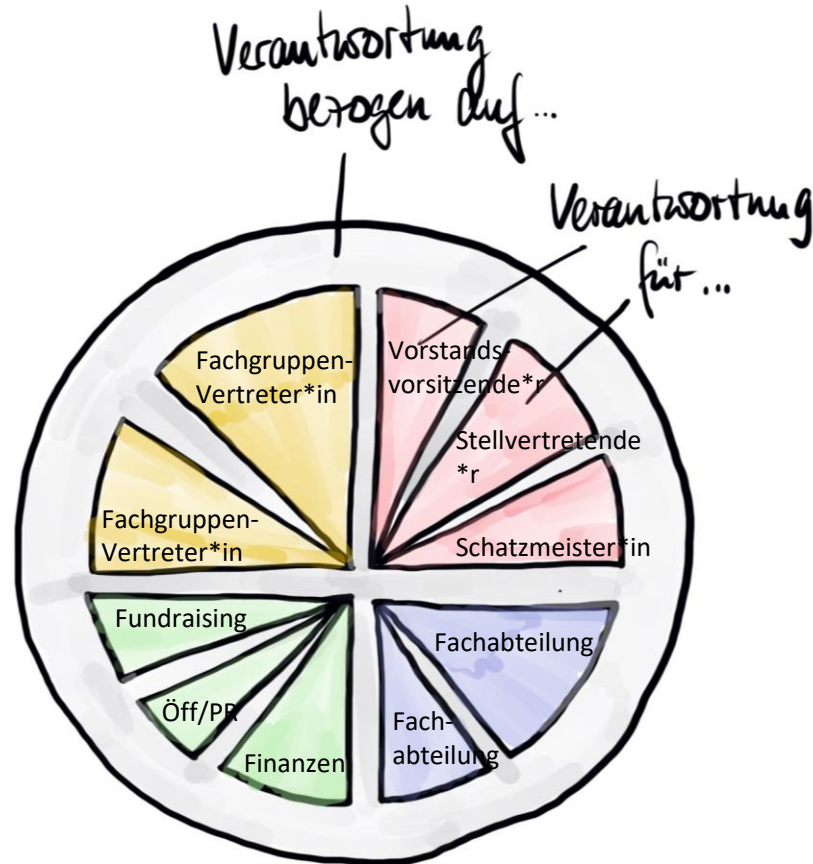 Verantwortung
bezogen auf...
Verantwortung
für...
Fachgruppen-
Vertreter*in
Vorstands-
vorsitzende*r
Stellvertretende
*r
Fachgruppen-
Vertreter*in
Schatzmeister*in
Fundraising
Öff/PR
Finanzen
Fachabteilung
Fach-
abteilung